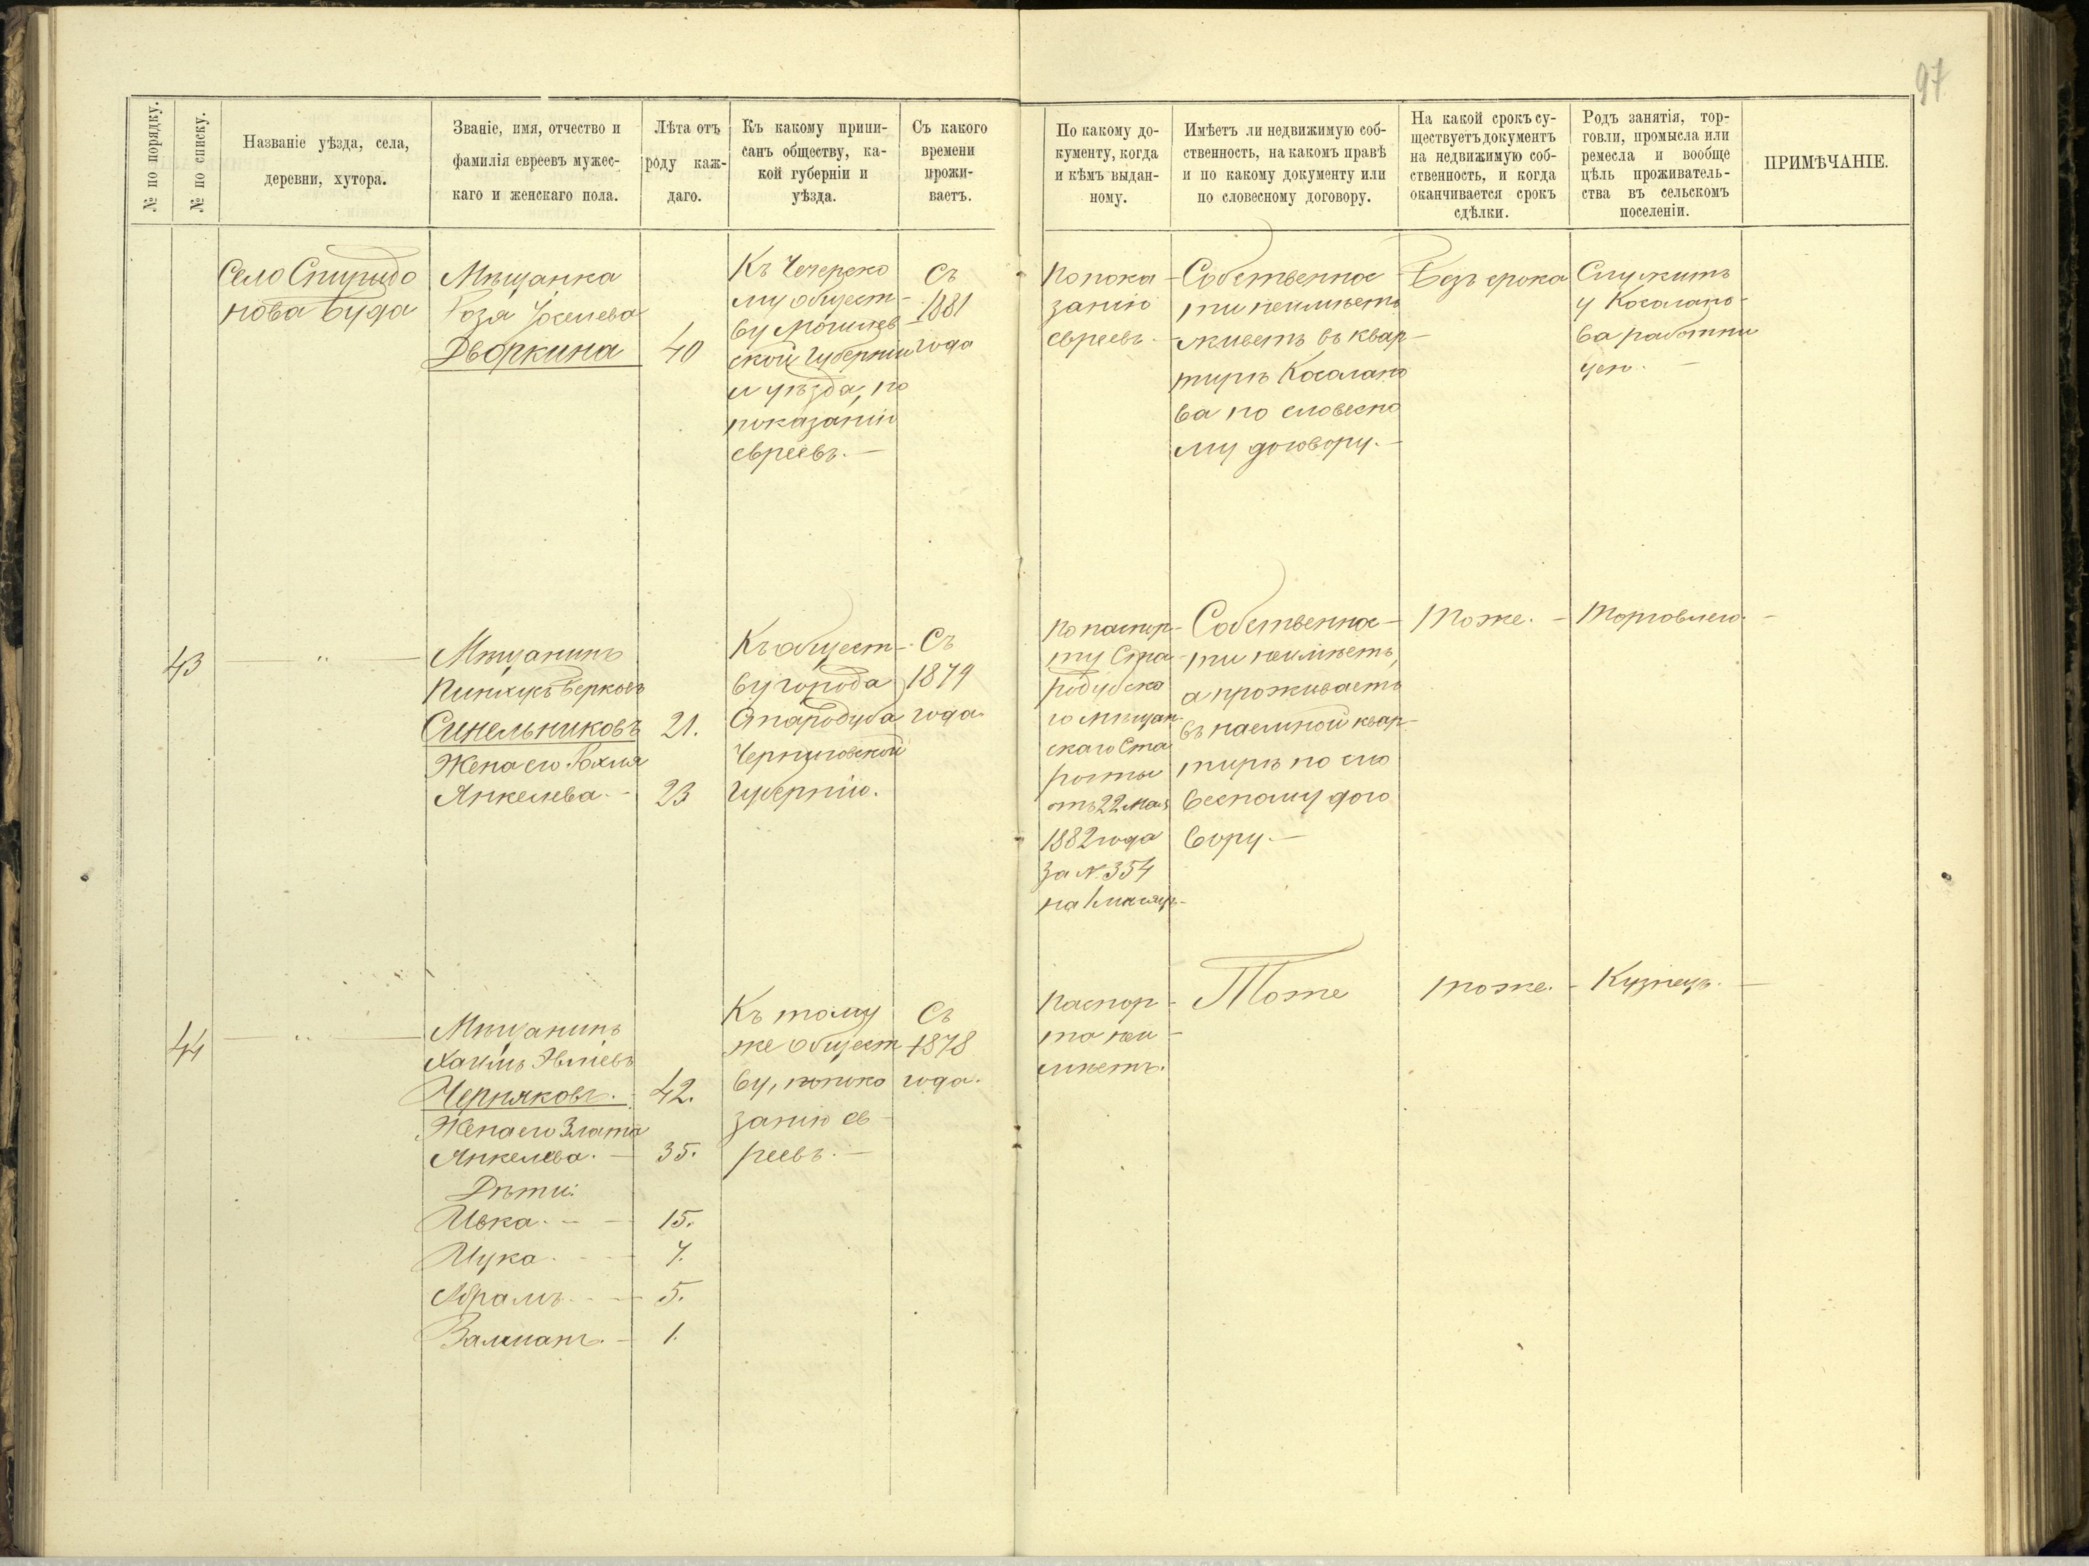 97
№ по порядку.
№ по списку.
Названіе уѣзда, села,
деревни, хутора.
Званіе, имя, отчество и
фамилія евреевъ мужес-
каго и женскаго пола.
Лѣта отъ
роду каж-
даго.
Къ какому припи-
санъ обществу, ка-
кой губерніи и
уѣзда.
Съ какого
времени
прожи-
ваетъ.
По какому до-
кументу, когда
и кѣмъ выдан-
ному.
Имѣетъ ли недвижимую соб-
ственность, на какомъ правѣ
и по какому документу или
по словесному договору.
На какой срокъ су-
ществуетъ документъ
на недвижимую соб-
ственность, и когда
оканчивается срокъ
сдѣлки.
Родъ занятія, тор-
говли, промысла или
ремесла и вообще
цѣль проживатель-
ства въ сельскомъ
поселеніи.
ПРИМѢЧАНІЕ.
Село Спиридо
нова Буда
Мѣщанка
Роза
Дворкина
40
Къ Чечерско
му общест-
ву Могилев
ской Губерніи
и уѣзда, по
показанію
евреевъ. —
Съ
1881
года
По пока-
занію
евреевъ. -
Собственнос-
ти неимѣетъ
живетъ въ квар-
тирѣ Косалапо
ва по словесно
му договору. —
Безъ срока
Служитъ
у Косалапо-
ва работни
цею. —
43
"
Мѣщанинъ
Пинхусъ Берковъ
Синельниковъ
Жена его Рохля
Янкелева. -
21.
23
Къ общест-
ву города
Стародуба
Черниговской
Губерніи.
Съ
1879
года
По паспор-
ту Ста
родубско
го мѣщан
скаго Ста
росты
отъ 22 мая
1882 года
за №. 354
на 1 мѣсяцъ-
Собственнос-
ти неимѣетъ,
а проживаетъ
въ наемной квар-
тирѣ по сло
весному дого
вору. —
Тоже. -
Торговлею. -
44
"
Мѣщанинъ
Хаимъ
Черняковъ.
Жена его Злата
Янкелева. -
Дѣти:
Ивка. - -
Цука. - -
Абрамъ. - -
Залманъ. -
42.
35.
15.
7.
5.
1.
Къ тому
же общест
ву, по пока
занію ев-
реевъ. —
Съ
1878
года.
Паспор-
та неи-
мѣетъ.
Тоже
тоже. -
Кузнецъ. -